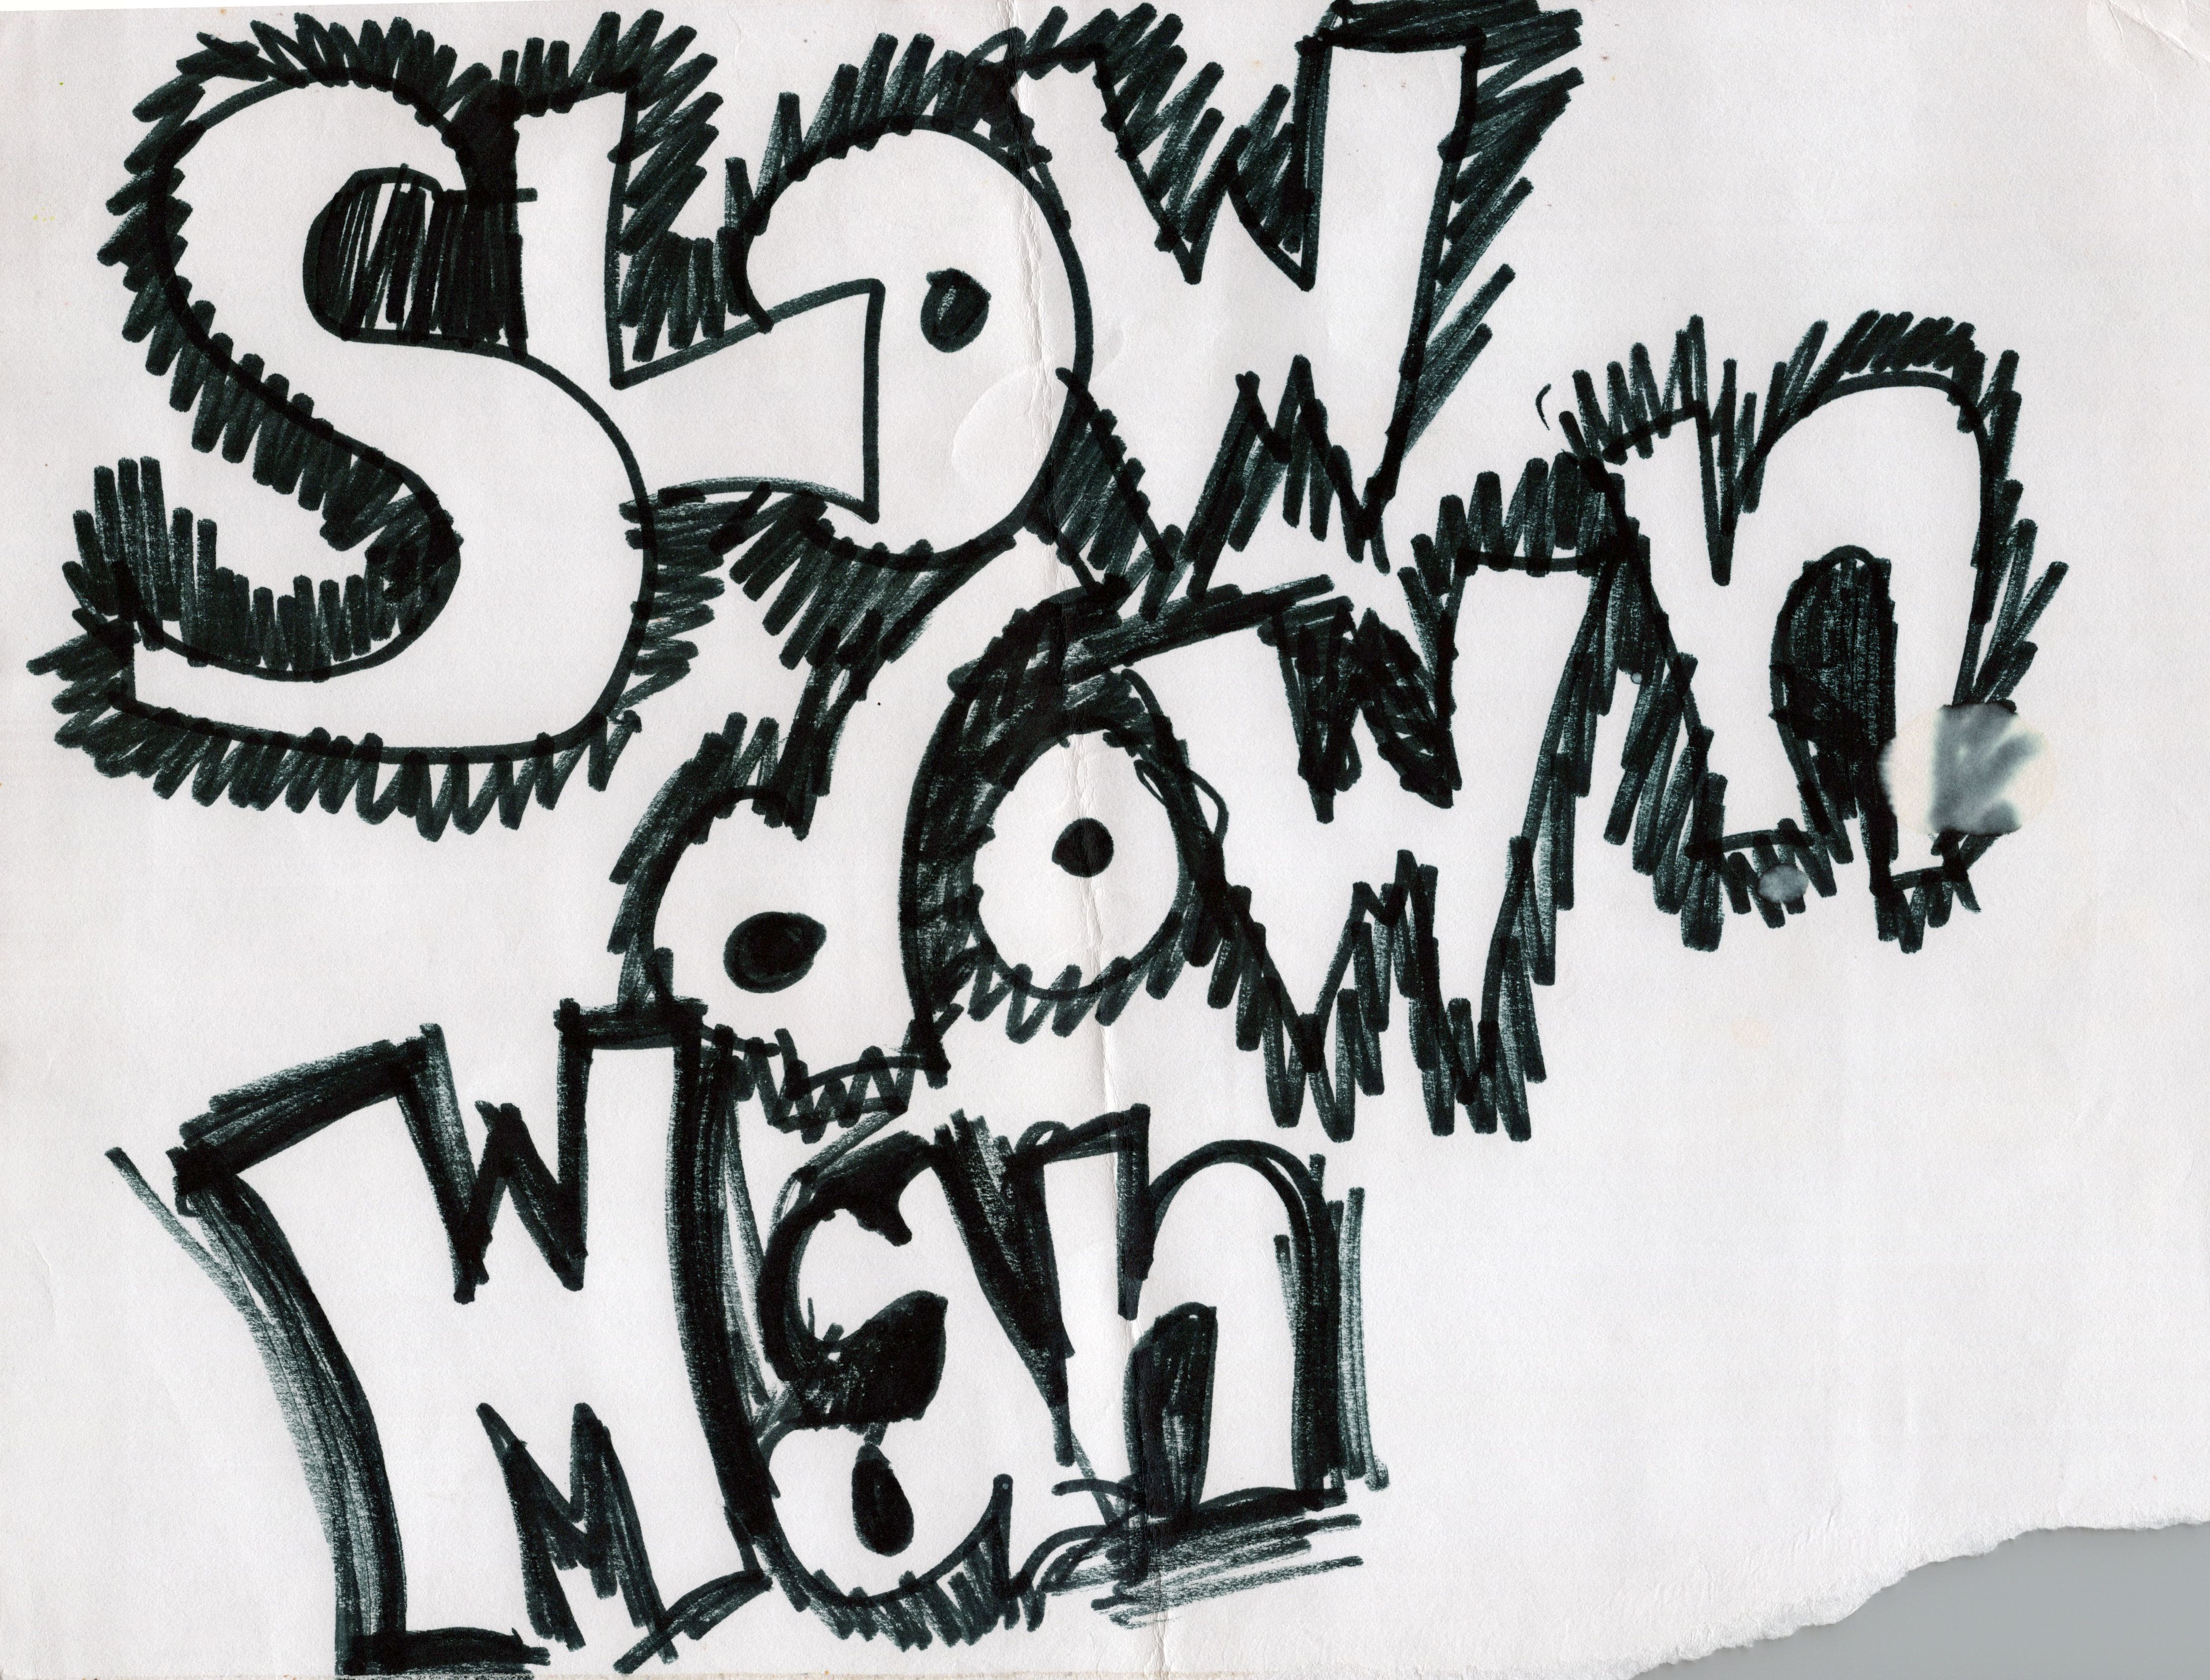 Slow
down
Man